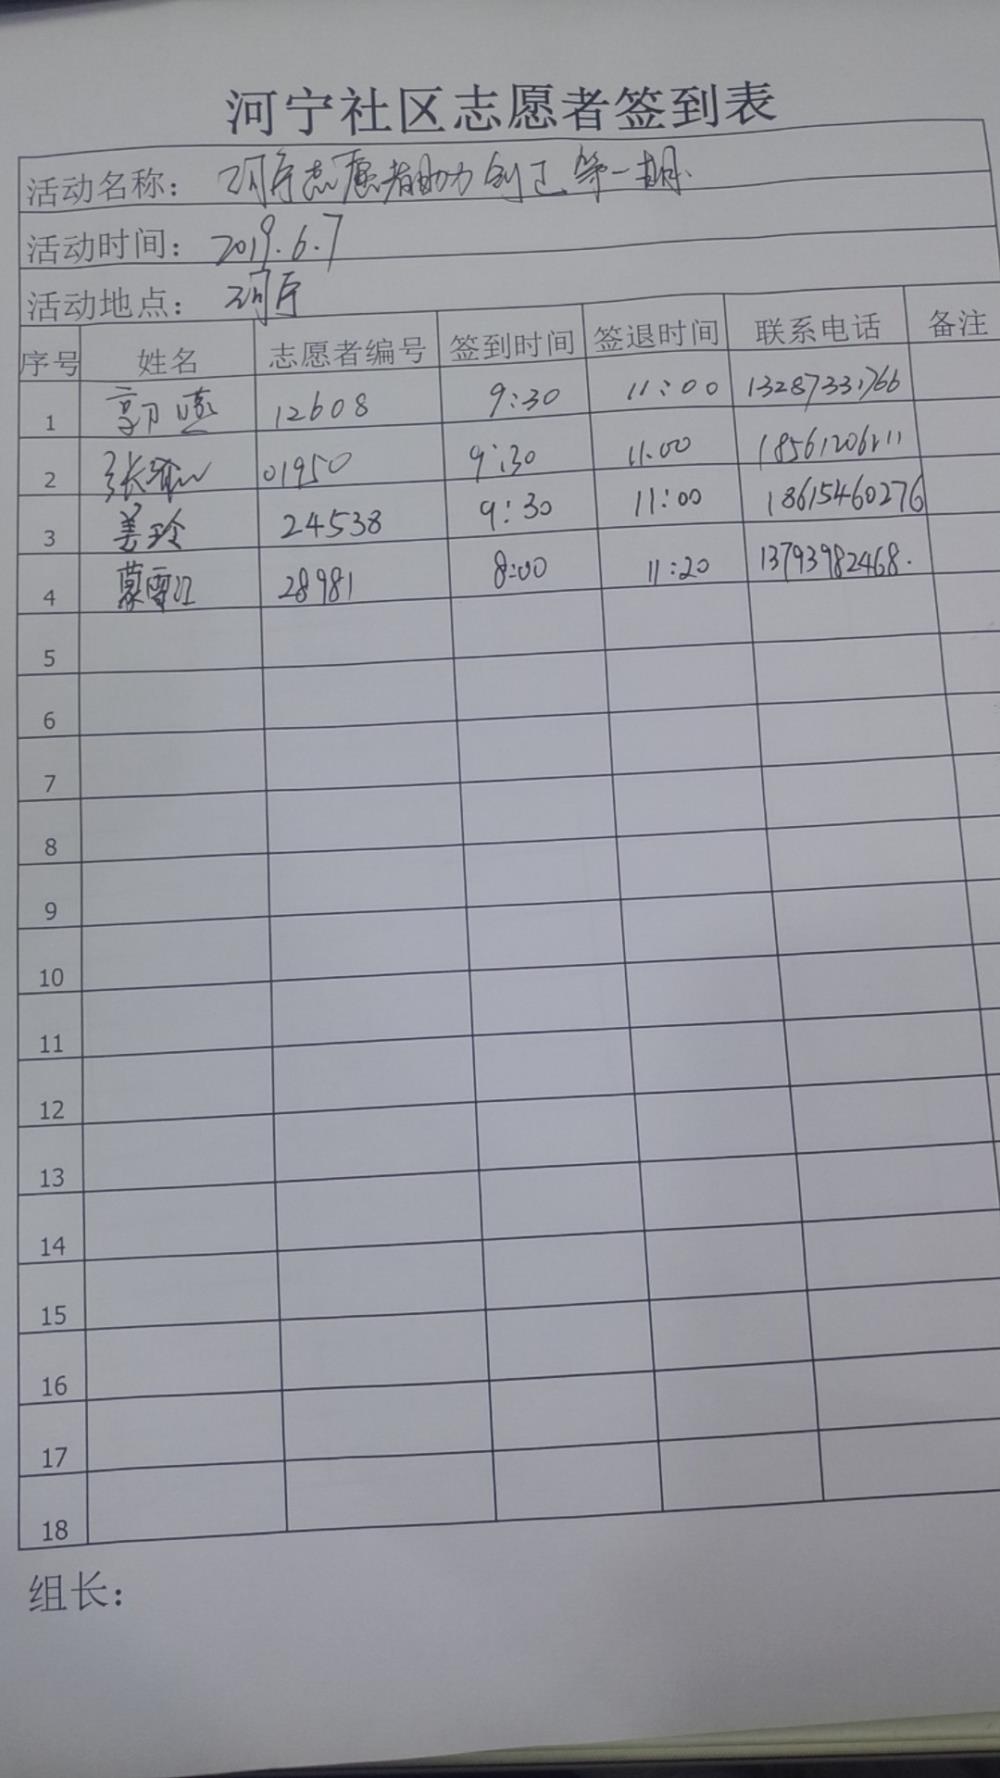 河宁社区志愿者签到表
活动名称： 河宁志愿者助力创卫第一期.
活动时间： 2019.6.7
活动地点： 河宁
序号 姓名 志愿者编号 签到时间 签退时间 联系电话 备注
1 郭 12608 9:30 11:00 13287331766
2 张 01950 9:30 11.00
3 姜玲 24538 9:30 11:00 18615460276
4 蒙雪江 28981 8:00 11:20 13793982468.
5
6
7
8
9
10
11
12
13
14
15
16
17
18
组长：